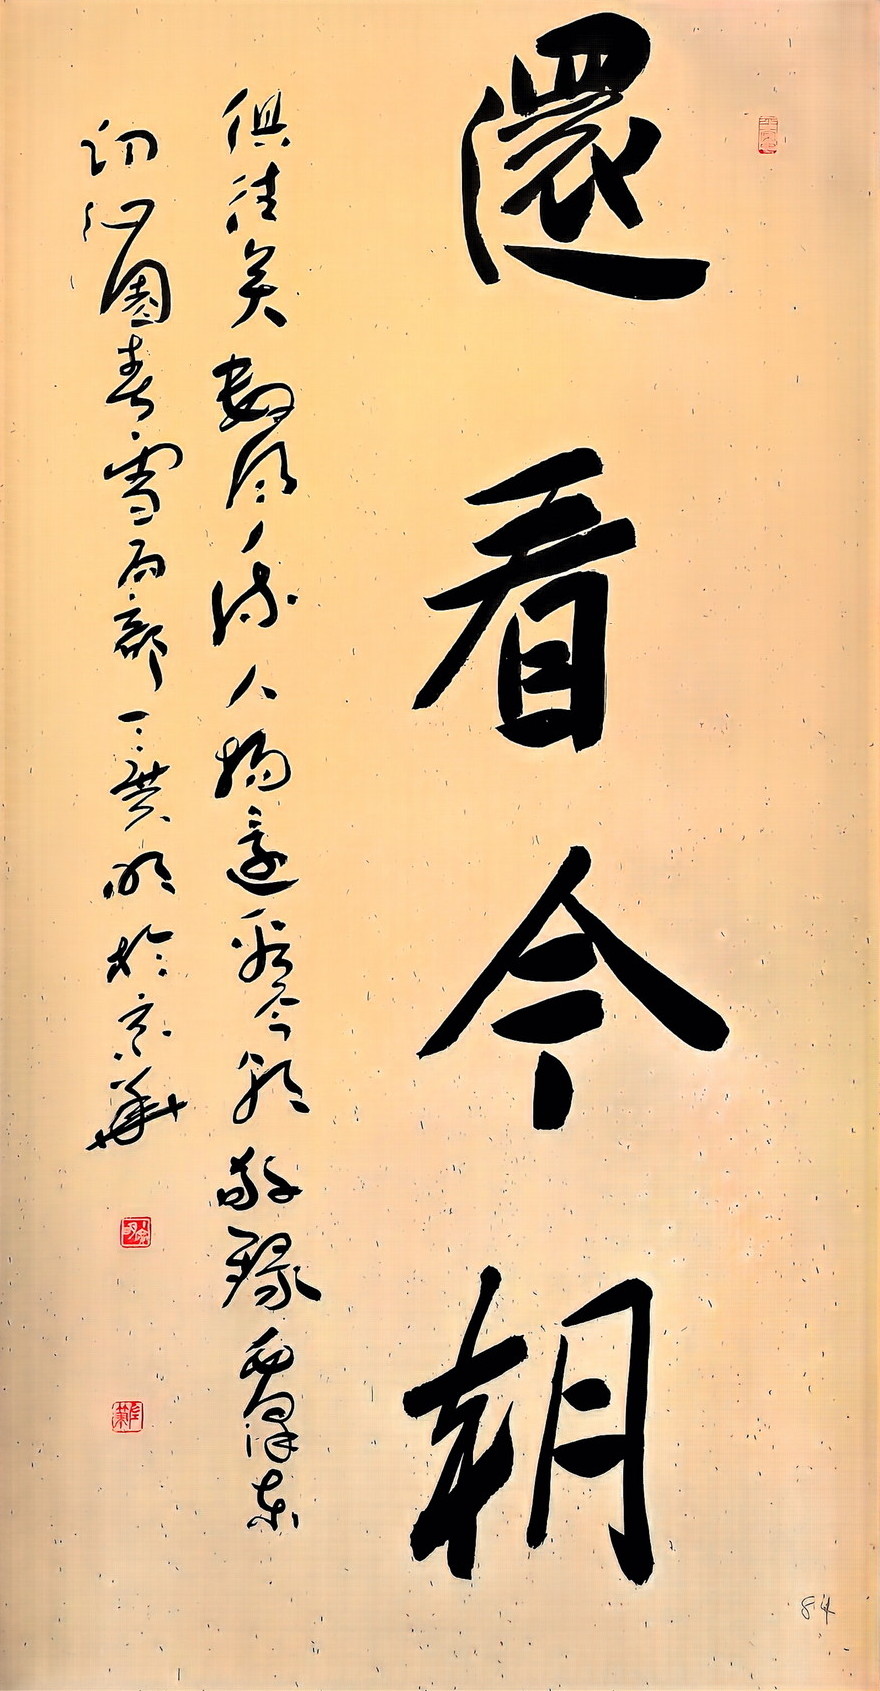 還看今朝
俱往矣數風流人物還看今朝敬錄毛澤東
詞沁園春雪局部 明於京華